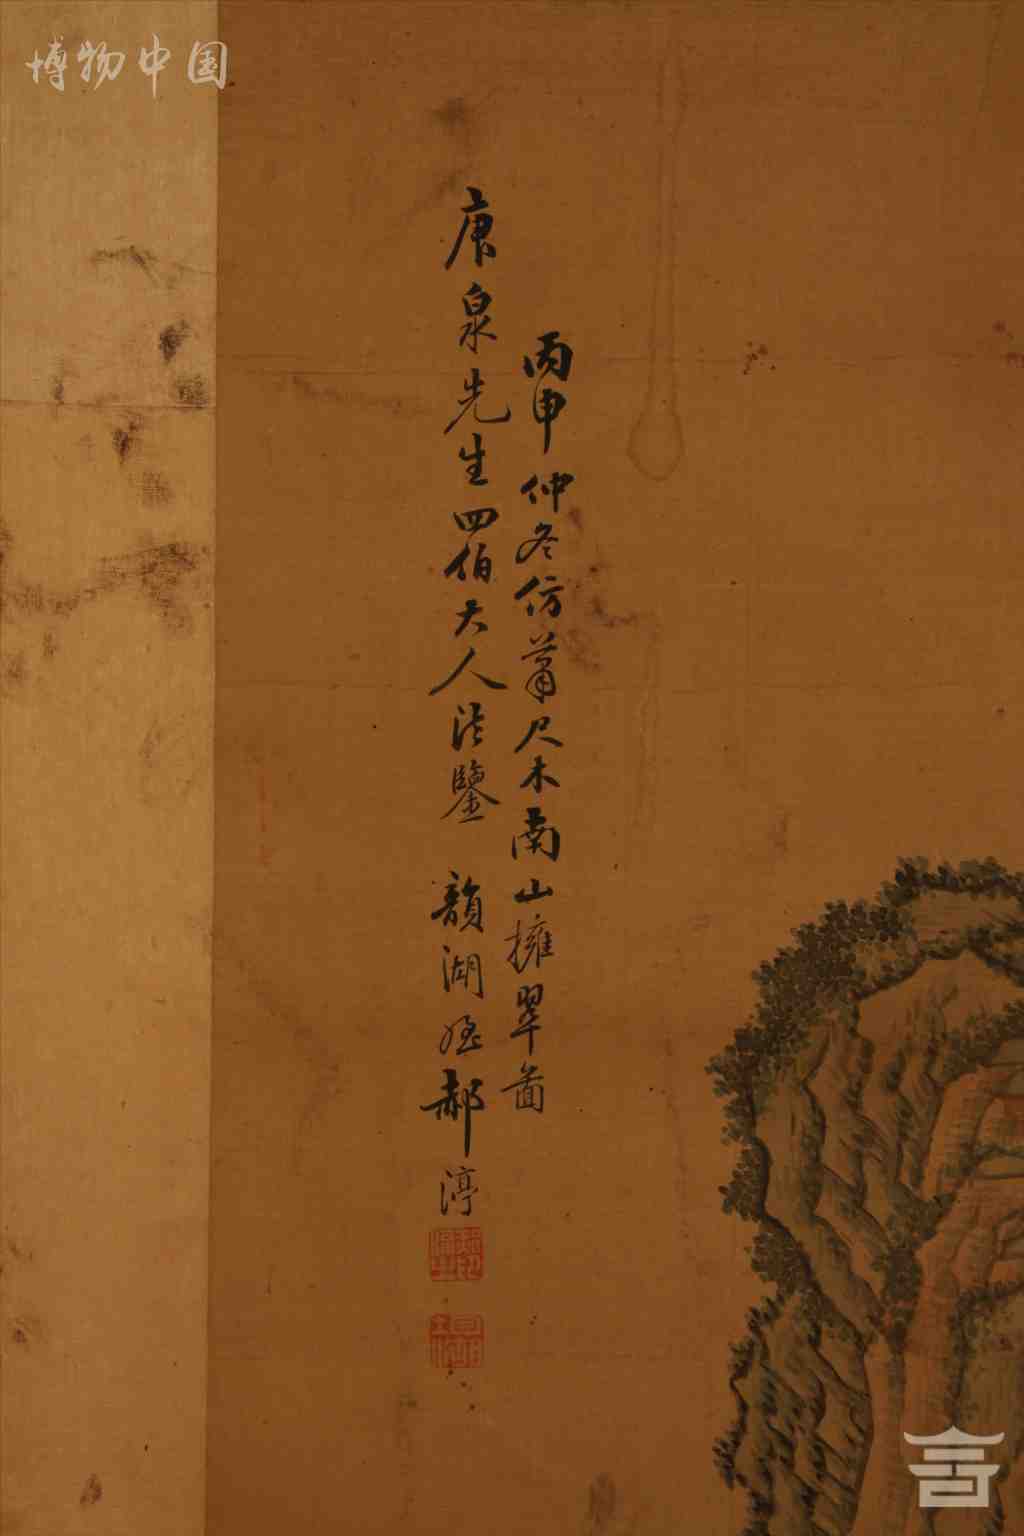 博物中国
丙申仲冬仿萧尺木南山擁翠啚
庚泉先生四伯大人法鑒 韻湖姪郝渟